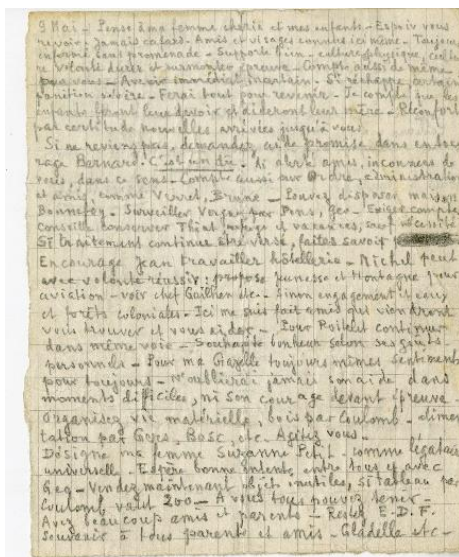 9 Mai - Pense à ma femme chérie et mes enfants - Espoir vous
revoir - Jamais cafard - Amis et visages connus ici même - Toujours
enfermé sauf promenade - Supporte faim - culture physique,
volonté dures et mauvaises épreuve - Compte aussi de même
pour vous - Avenir immédiat incertain - Si réchappe certain
punition sévère - Ferai tout pour revenir - Je compte que les
enfants feront leur devoir et aideront leur mère - Réconfort
par certitude nouvelles arrivées jusqu'à vous.
Si ne reviens pas, demandez aide promise dans
Barnard. C'est un dû. Ai alerté amis, inconnus de
vous, dans ce sens - Compte aussi sur Ordre, administration
et amis, comme Vivret, Brune - Pouvez disposer maison
Bonnefoy - Surveiller par Pons, Geo - Exiger comptes
Conseille conserver Thiat et vacances, sauf nécessité
Si traitement continue être versé, faites savoir
Encourage Jean travailler hôtellerie - Michel peut
avec volonté réussir : propose Jeunesse et Montagne pour
aviation - voir chef Gailhen etc - Sinon engagement et eaux
et forêts coloniales - Ici me suis fait amis qui viendront
vous trouver et vous aider - Pour Poitelet continuer
dans même voie - Souhaite bonheur selon ses goûts
personnels - Pour ma Gazelle toujours mêmes sentiments
pour toujours - N'oublierai jamais son aide dans
moments difficiles, ni son courage devant épreuve -
Organisez vie matérielle, bois par Coulomb - alimen
tation par Gores, Bosc, etc - Agitez vous -
Désigne ma femme Suzanne Petit - comme légataire
universelle - Espère bonne entente entre tous et avec
Geo - Vendez maintenant objets inutiles, si tableau par
Coulomb vaut 200 - A vous tous pouvez tenir -
Avez beaucoup amis et parents - Restez E.D.F.
Souvenir à tous parents et amis - Gladelle etc -